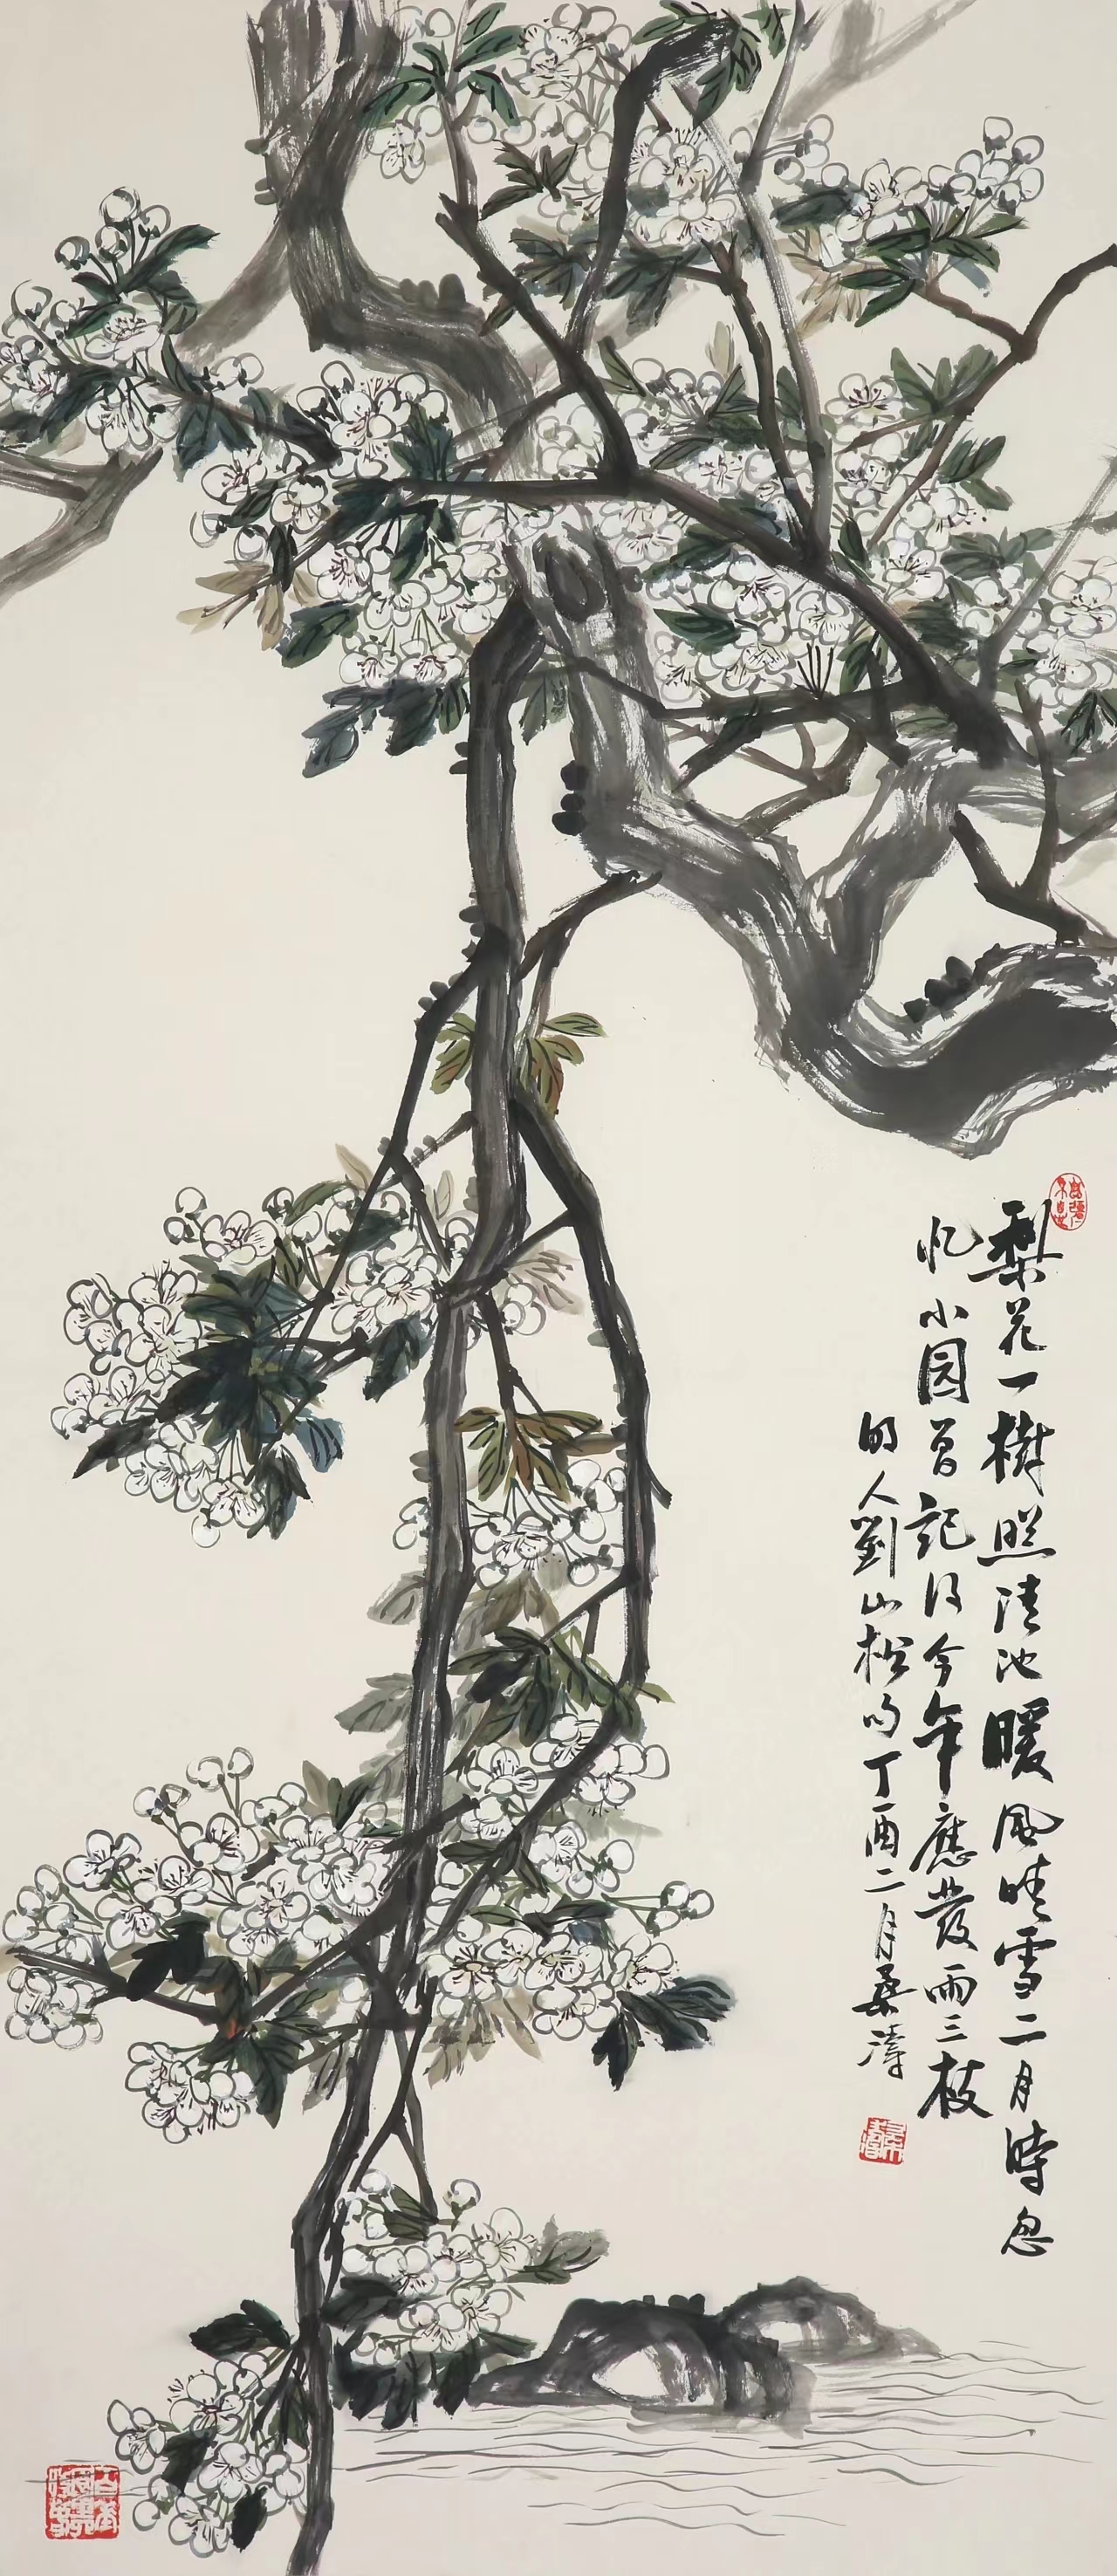 梨花一樹照清池暖風晴雪二月時忽
忆小园曾記得今年應發兩三枝
明人劉山松句丁酉二月桑濤